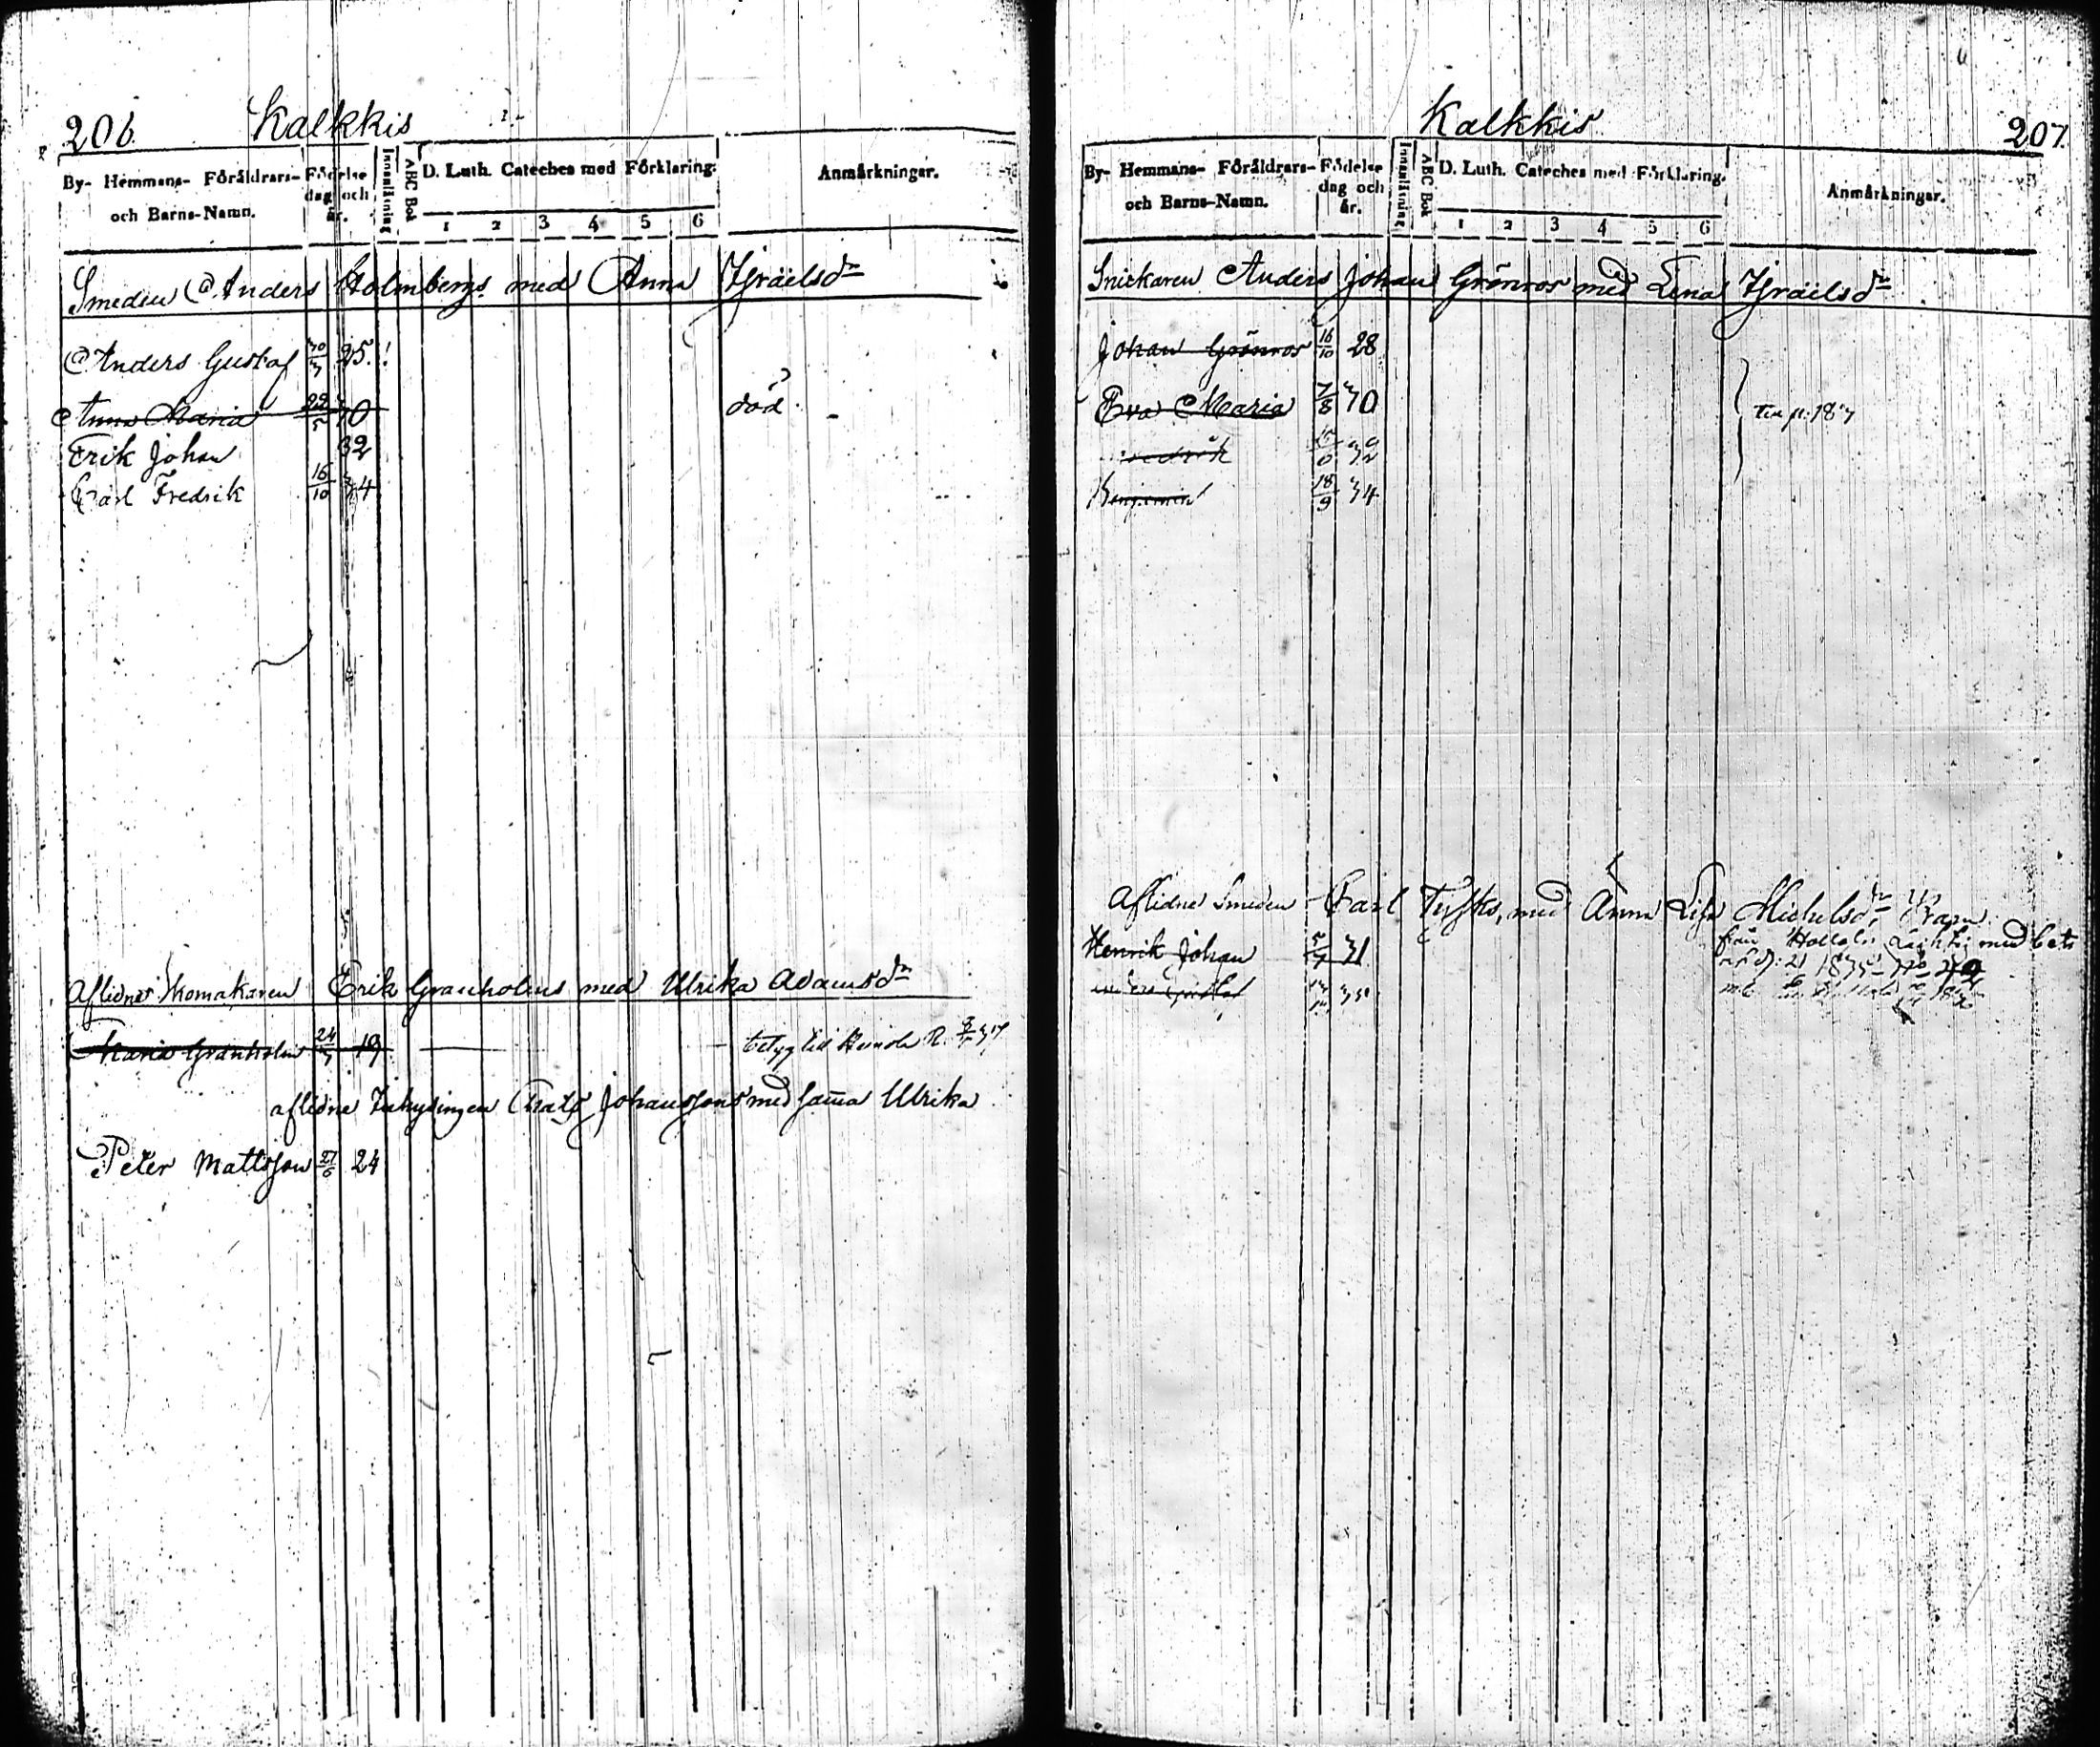 206. Kalkkis
By- Hemmans- Föräldrars- och Barns-Namn. Födelse dag och år. Innanläsning ABC Bok D. Luth. Cateches med Förklaring. 1 2 3 4 5 6 Anmärkningar.
Smeden Anders Holmbergs med Anna Israelsdr
Anders Gustaf 25.
Anna Maria 22/5 30 död
Erik Johan 32
Carl Fredrik 16/10 34
Aflidne Skomakaren Erik Granholms med Ulrika Adamsdr
Maria Granholm 24/3 19 betyg till Heinola
aflidne Inhysingen Matts Johanssons med sama Ulrika
Peter Mattsson 27/6 24
Kalkkis 207.
By- Hemmans- Föräldrars- och Barns-Namn. Födelse dag och år. Innanläsning ABC Bok D. Luth. Cateches med Förklaring. 1 2 3 4 5 6 Anmärkningar.
Snickaren Anders Johan Grönroos med Lena Israelsdr
Johan Grönroos 16/10 28
Eva Maria 7/8 30
32
Benjamin 18/9 34
Aflidne Smeden Carl Tysks, med Anna Lisa Michelsdr
Henrik Johan 31 från Hollola med bet.